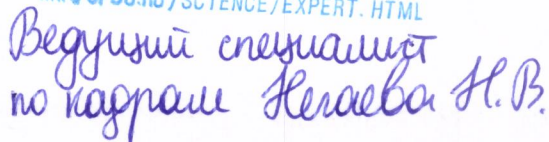 /SCIENCE/EXPERT.HTML
Ведущий специалист
по кадрам Негаева Н.В.